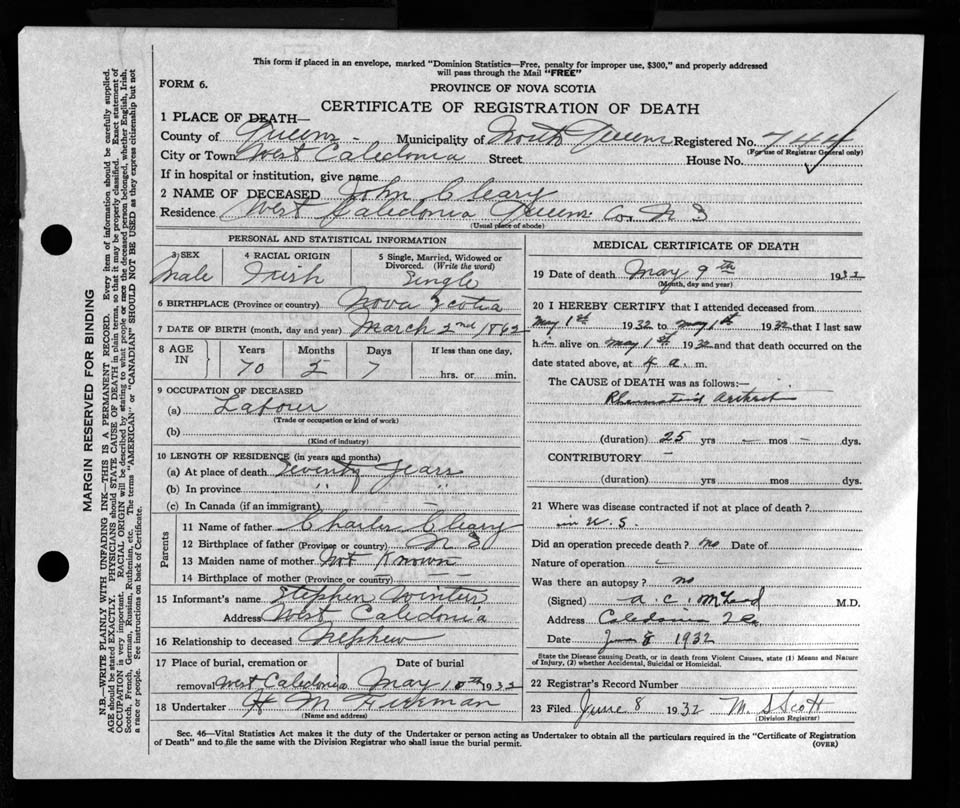 This form if placed in an envelope, marked "Dominion Statistics—Free, penalty for improper use, $300," and properly addressed
will pass through the Mail "FREE"
FORM 6.
PROVINCE OF NOVA SCOTIA
CERTIFICATE OF REGISTRATION OF DEATH
1 PLACE OF DEATH—
County of Queens - Municipality of North Queens Registered No. 744
(For use of Registrar General only)
City or Town West Caledonia Street House No.
If in hospital or institution, give name
2 NAME OF DECEASED John Cleary
Residence West Caledonia Queens Co. N S
(Usual place of abode)
PERSONAL AND STATISTICAL INFORMATION
3 SEX 4 RACIAL ORIGIN 5 Single, Married, Widowed or
Divorced. (Write the word)
Male Irish Single
6 BIRTHPLACE (Province or country) Nova Scotia
7 DATE OF BIRTH (month, day and year) March 2nd 1862
8 AGE IN Years Months Days If less than one day,
70 2 7 hrs. or min.
9 OCCUPATION OF DECEASED
(a) Labour
(Trade or occupation or kind of work)
(b)
(Kind of industry)
10 LENGTH OF RESIDENCE (in years and months)
(a) At place of death Seventy Years
(b) In province " "
(c) In Canada (if an immigrant)
Parents
11 Name of father Charles Cleary
12 Birthplace of father (Province or country) N S
13 Maiden name of mother Not Known
14 Birthplace of mother (Province or country) — —
15 Informant's name Stephen Winters
Address West Caledonia
16 Relationship to deceased Nephew
17 Place of burial, cremation or Date of burial
removal West Caledonia May 10th 1932
18 Undertaker H M
(Name and address)
MEDICAL CERTIFICATE OF DEATH
19 Date of death May 9th 1932
(Month, day and year)
20 I HEREBY CERTIFY that I attended deceased from
May 1st 1932 to May 1st 1932 that I last saw
him alive on May 1st 1932 and that death occurred on the
date stated above, at 4 a. m.
The CAUSE of DEATH was as follows:—
Rheumatoid Arthritis
(duration) 25 yrs — mos — dys.
CONTRIBUTORY —
(duration) yrs. mos. dys.
21 Where was disease contracted if not at place of death?
in U. S.
Did an operation precede death? no Date of
Nature of operation —
Was there an autopsy? no
(Signed) A. C. McLeod M.D.
Address Caledonia
Date June 8 1932
State the Disease causing Death, or in death from Violent Causes, state (1) Means and Nature
of Injury, (2) whether Accidental, Suicidal or Homicidal.
22 Registrar's Record Number
23 Filed June 8 1932 M. S Scott
(Division Registrar)
Sec. 46—Vital Statistics Act makes it the duty of the Undertaker or person acting as Undertaker to obtain all the particulars required in the "Certificate of Registration
of Death" and to file the same with the Division Registrar who shall issue the burial permit.
(OVER)
MARGIN RESERVED FOR BINDING
N.B.—WRITE PLAINLY WITH UNFADING INK—THIS IS A PERMANENT RECORD. Every item of information should be carefully supplied.
AGE should be stated EXACTLY. PHYSICIANS should STATE CAUSE OF DEATH in plain terms, so that it may be properly classified. Exact statement of
OCCUPATION is very important. RACIAL ORIGIN will be described by stating to what people or race the deceased person belonged, whether English, Irish,
Scotch, French, German, Russian, Ruthenian, etc. The terms "AMERICAN" or "CANADIAN" SHOULD NOT BE USED as they express citizenship but not
a race or people. See instructions on back of Certificate.